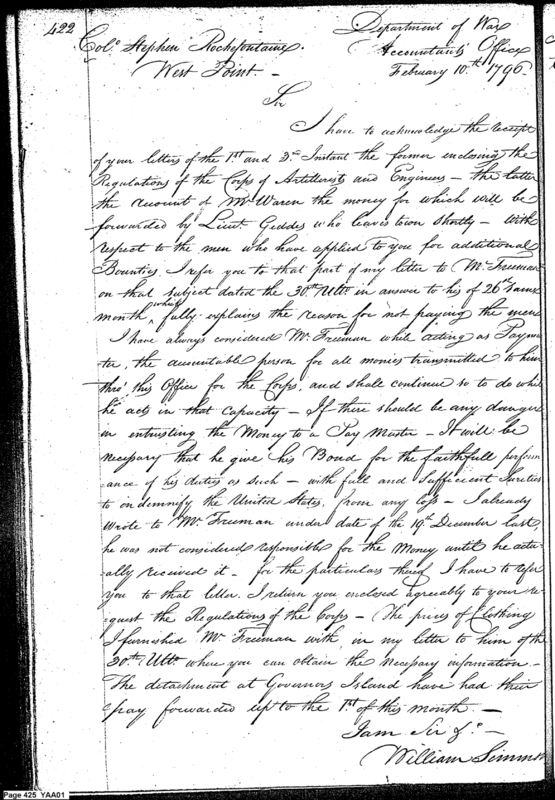 422
Department of War
Colo. Stephen Rochefontaine. Accountants Office
West Point - February 10th. 1796.
Sir
I have to acknowledge the receipt
of your letters of the 1st and 3d. Instant the former enclosing the
Regulations of the Corps of Artillerists and Engineers - the latter
the account of Mr. Waren the money for which will be
forwarded by Lieut. Geddes who leaves town Shortly - With
respect to the men who have applied to you for additional
Bounties, I refer you to that part of my letter to Mr. Freeman
on that subject dated the 30th Ulto. in answer to his of 26th same
month, which fully explains the reason for not paying the men
I have always considered Mr. Freeman while acting as Paymas
ter, the accountable person for all monies transmitted to him
thro' this Office for the Corps, and shall continue so to do while
he acts in that capacity - If there should be any danger
in entrusting the Money to a Pay Master - It will be
necessary that he give his Bond for the faithfull perform
ance of his duties as such - with full and Sufficient Sureties
to indemnify the United States, from any loss - I already
wrote to Mr. Freeman under date of the 19th December last,
he was not considered responsible for the Money until he actu
ally received it - for the particulars thereof I have to refer
you to that letter. I return you enclosed agreably to your re
quest the Regulations of the Corps - The prices of Clothing
I furnished Mr. Freeman with, in my letter to him of the
30th Ulto. where you can obtain the necessary information -
The detachment at Governors Island have had their
pay forwarded up to the 1st. of this month -
I am Sir &c. -
William Simmons
Page 425 YAA01